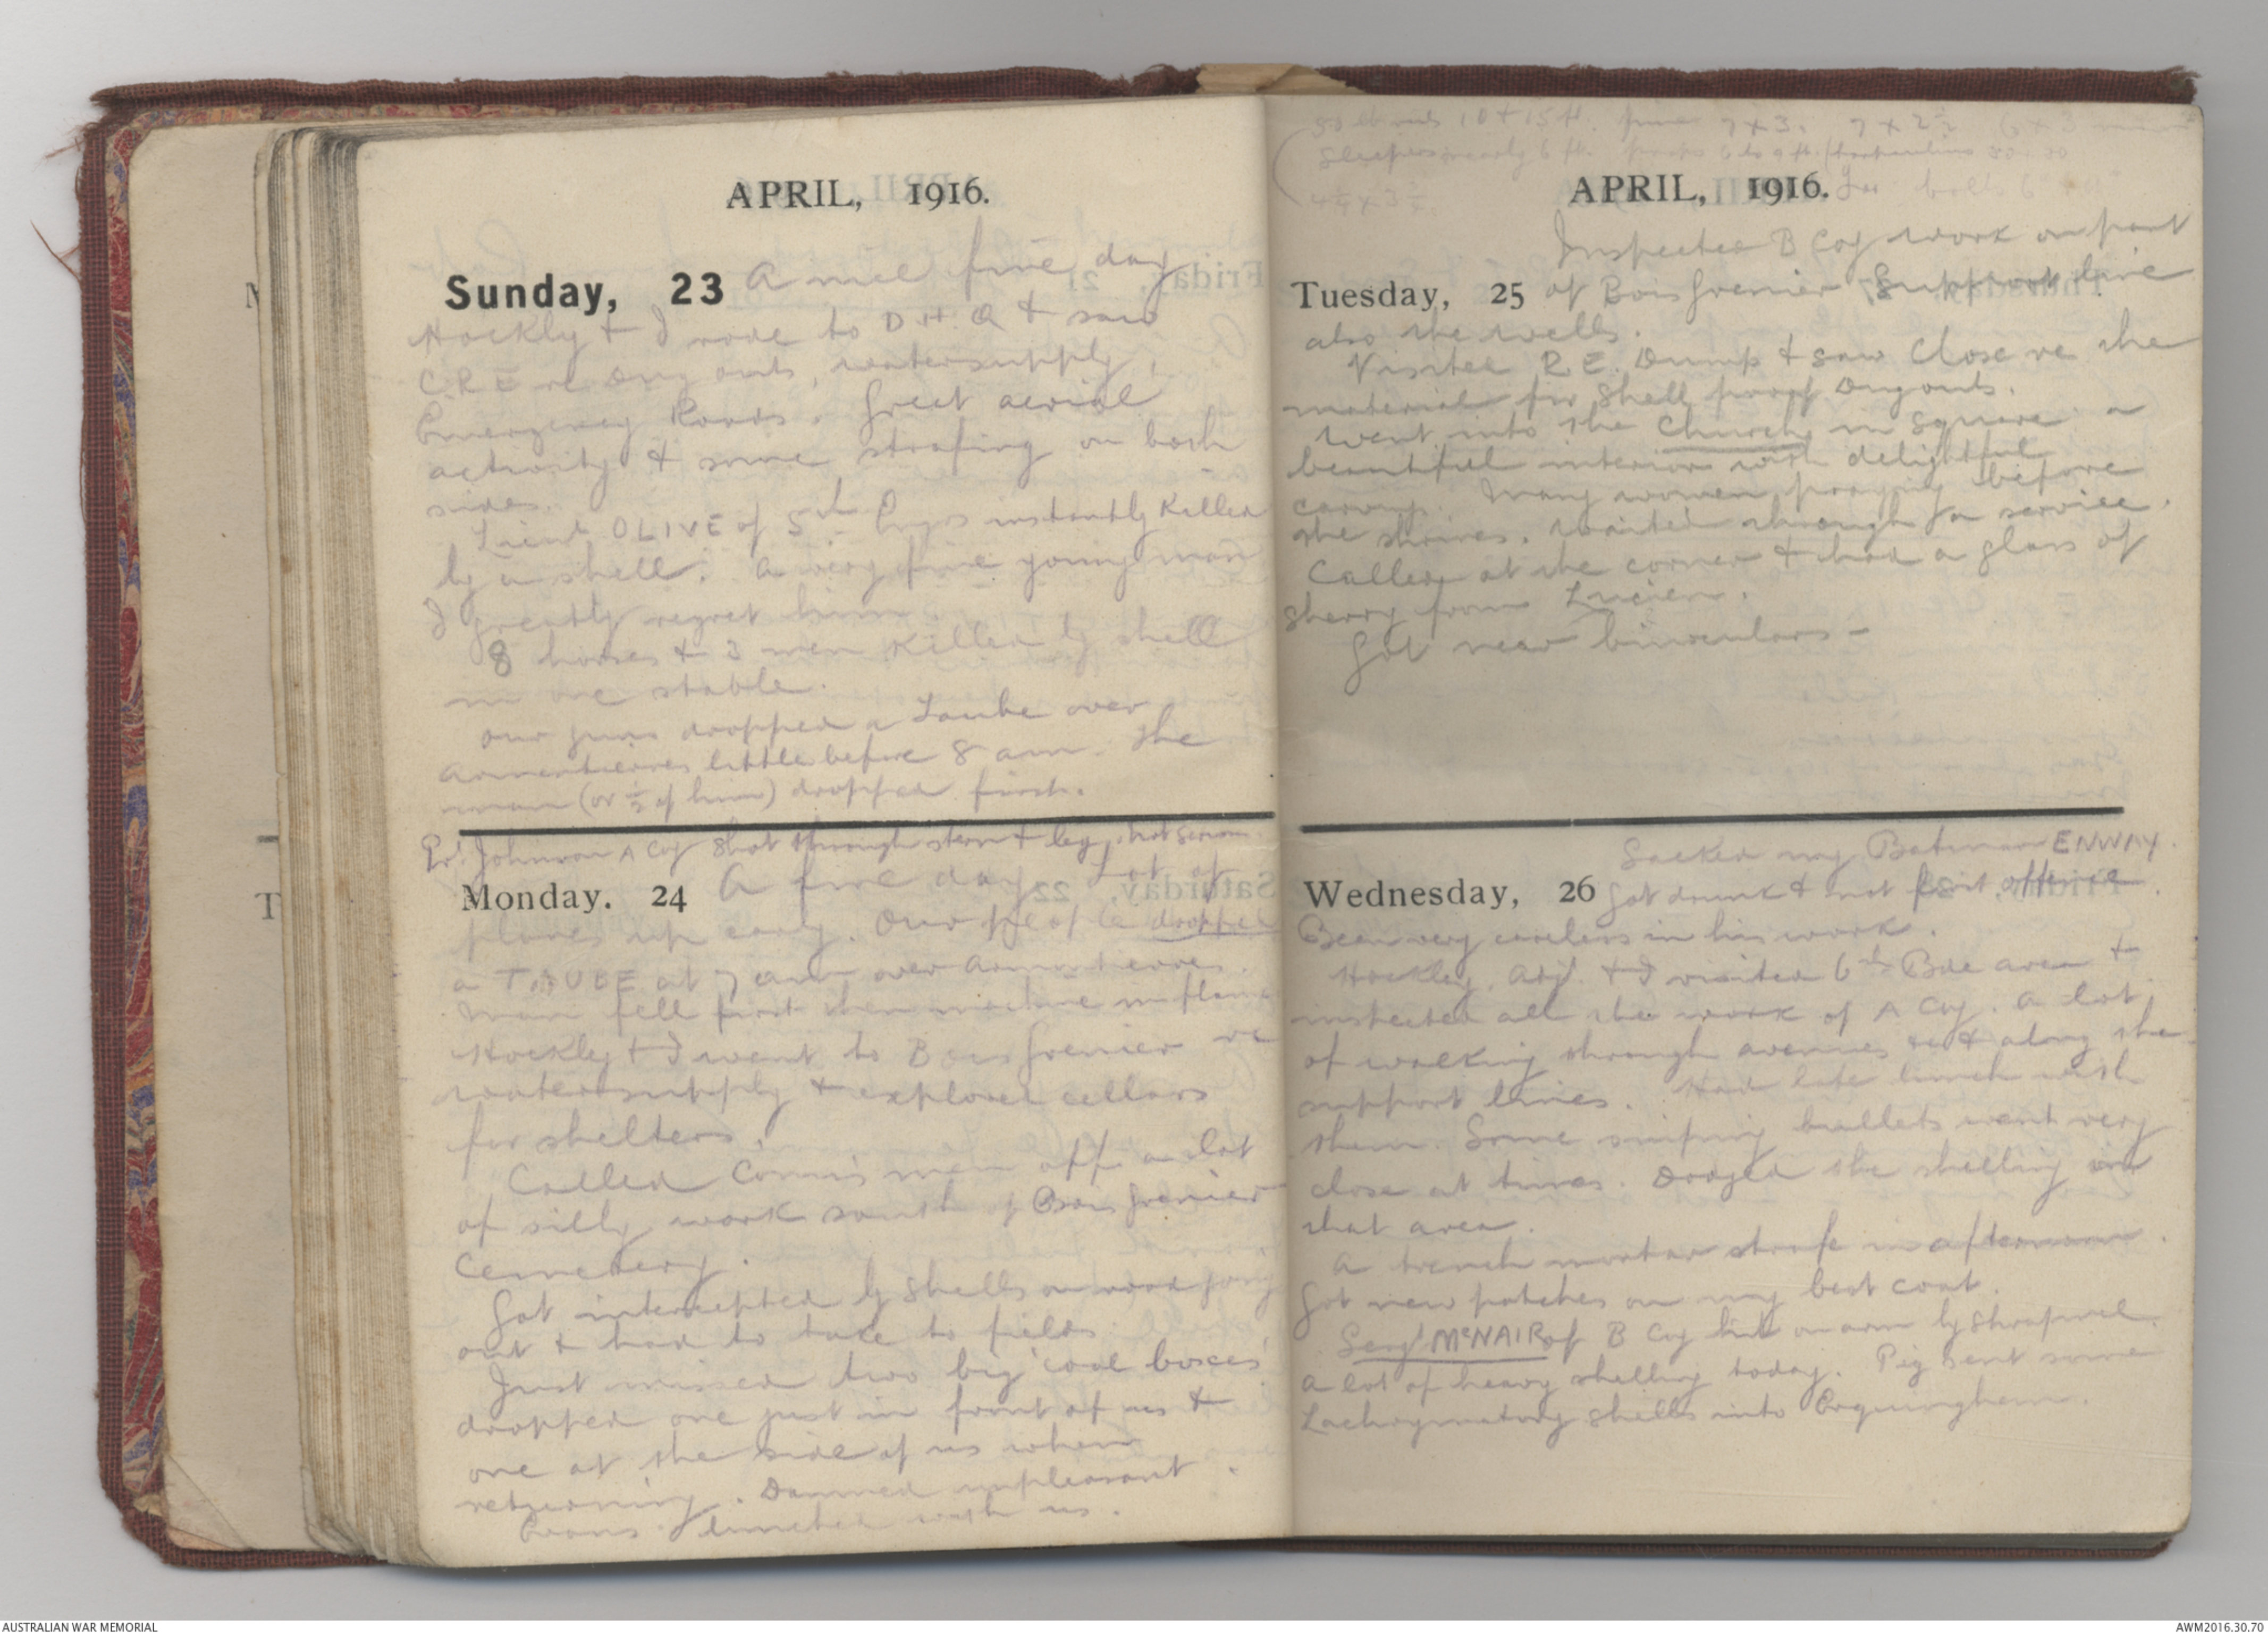 APRIL, 1916.
Sunday, 23 A nice fine day
Hockly & I rode to D.H.Q & saw
C.R.E re Dug outs, watersupply,
Emergency Roads. Great aerial
activity & some strafing on both
sides.
Lieut OLIVE of 5th Engrs instantly killed
by a shell. A very fine young man
I greatly regret him.
8 horses & 3 men killed by shell
in one stable.
Our guns dropped a Taube over
Armentieres little before 8 am. The
man (or ½ of him) dropped first.
Pt. Johnson A Coy Shot through stern & leg, not serious.
Monday. 24 A fine day Lot of
planes up early. Our people dropped
a TAUBE at 7 am over Armentierres.
Man fell first then machine in flame
Hockley & I went to Bois Grenier re
watersupply & explored cellars
for shelters.
Called men off a lot
of silly work south of Bois Grenier
Cemetery.
Got intercepted by shells on road going
out & had to take to fields.
Just missed two big 'coal boxes'
dropped one just in front of us &
one at the side of us when
returning. Damned unpleasant.
Evans lunched with us.
50 lb rails 10 & 15 ft. 7 x 3. 7 x 2½ 6 x 3
Sleepers nearly 6 ft. props 6 to 9 ft.
4½ x 3½.
APRIL, 1916.
Inspected B Coy work on part
Tuesday, 25 of Bois Grenier Support line
also the wells.
Visited R.E. Dump & saw Close re the
material for Shell proof Dugouts.
Went into the Church in Square a
beautiful interior with delightful
carvings. Many women praying before
the shrines. Waited through for service.
Called at the corner & had a glass of
sherry from Lucien.
Got new binoculars -
Sacked my Batman ENWAY.
Wednesday, 26 Got drunk & not first offence.
Been very careless in his work.
Hockley, Adj. & I visited 6th Bde area &
inspected all the work of A Coy. A lot
of walking through avenues & along the
support lines. Had late lunch with
them. Some sniping bullets went very
close at times. Dodged the shelling in
that area.
A trench mortar strafe in afternoon.
Got new patches on my best coat.
Sergt McNAIR of B Coy hit on arm by shrapnel.
A lot of heavy shelling today. Pig sent some
Lachrymatory shells into Erquinghem.
AUSTRALIAN WAR MEMORIAL
AWM2016.30.70